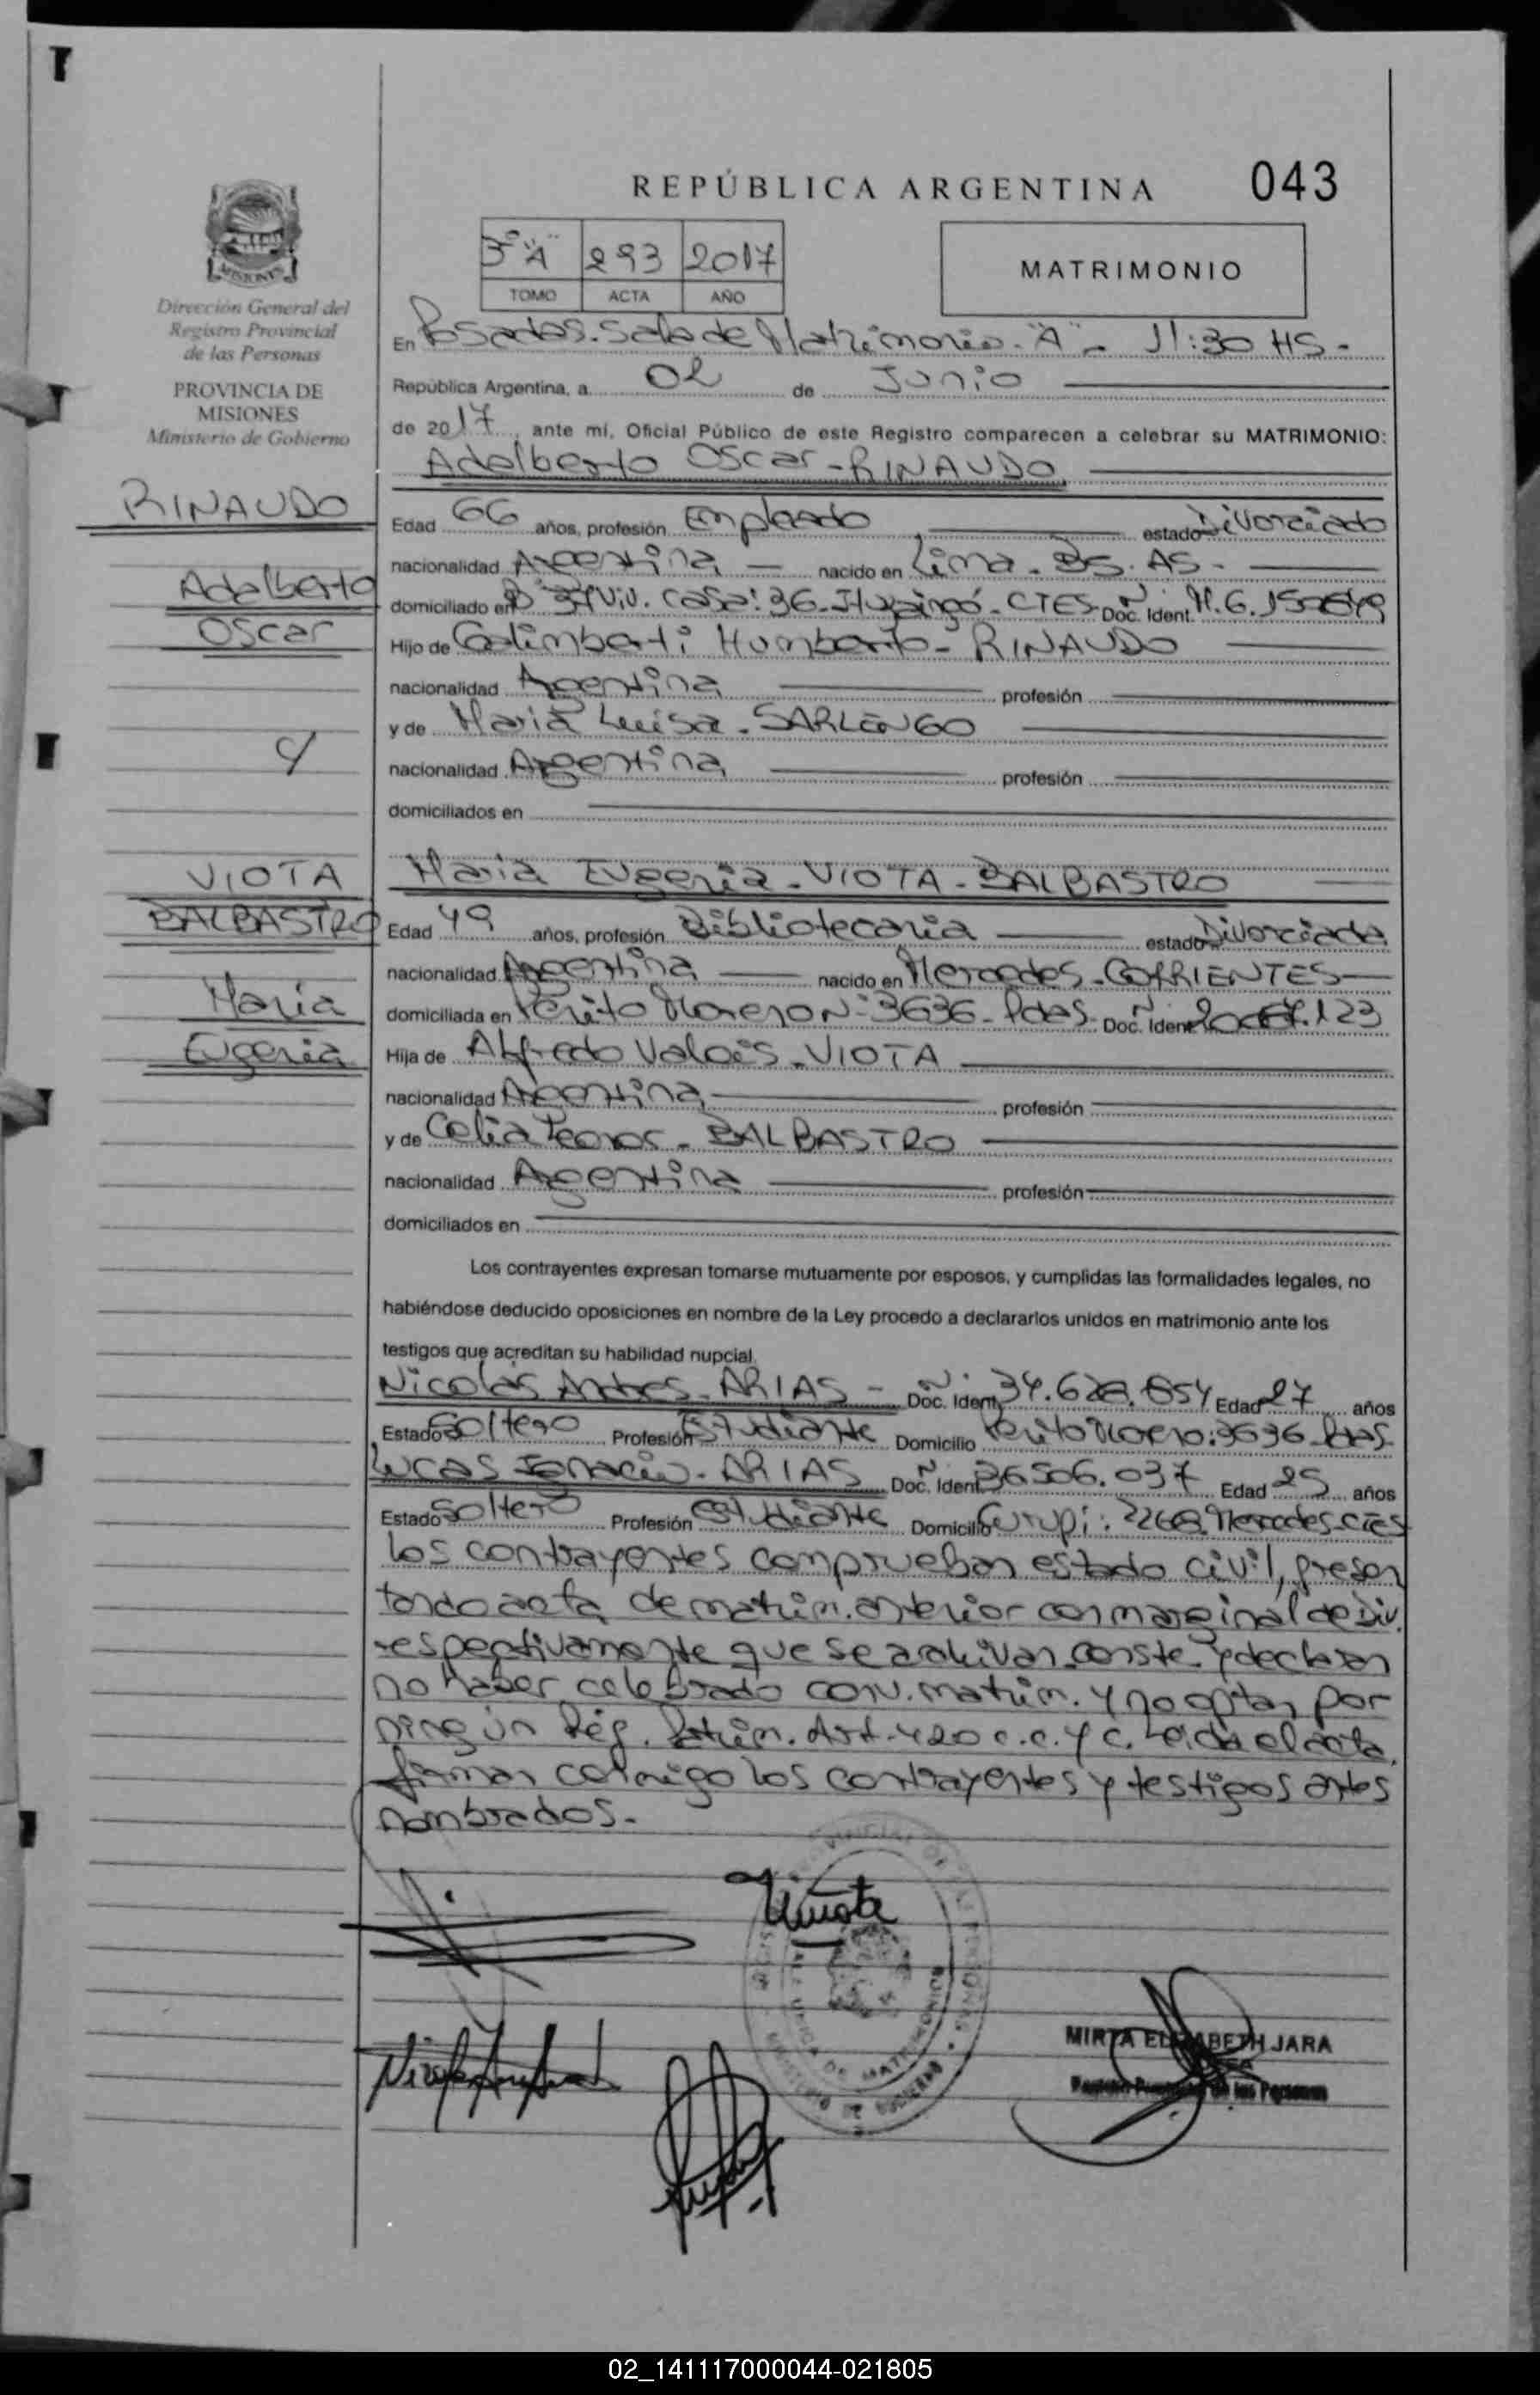 REPÚBLICA ARGENTINA 043
3° "A" 293 2017
TOMO ACTA AÑO
MATRIMONIO
MISIONES
Dirección General del
Registro Provincial
de las Personas
PROVINCIA DE
MISIONES
Ministerio de Gobierno
En Posadas. Sala de Matrimonio. "A" - 11:30 HS -
República Argentina, a 02 de Junio
de 2017, ante mí, Oficial Público de este Registro comparecen a celebrar su MATRIMONIO:
Adalberto Oscar - RINAUDO
RINAUDO
Adalberto
Oscar
Edad 66 años, profesión Empleado estado Divorciado
nacionalidad Argentina - nacido en Lima. BS. AS.
domiciliado en Viv. Casa: 36 - Ituzaingó - CTES - Doc. Ident. N°
Hijo de Galimberti Humberto - RINAUDO
nacionalidad Argentina profesión
y de Maria Luisa - SARLENGO
y
nacionalidad Argentina profesión
domiciliados en
Maria Eugenia - VIOTA - BALBASTRO
VIOTA
BALBASTRO
Maria
Eugenia
Edad 49 años, profesión Bibliotecaria estado Divorciada
nacionalidad Argentina nacido en Mercedes - CORRIENTES
domiciliada en Perito Moreno N° 3636 - Pdas. Doc. Ident. N°
Hija de Alfredo Valois - VIOTA
nacionalidad Argentina profesión
y de Celia Leonor - BALBASTRO
nacionalidad Argentina profesión
domiciliados en
Los contrayentes expresan tomarse mutuamente por esposos, y cumplidas las formalidades legales, no
habiéndose deducido oposiciones en nombre de la Ley procedo a declararlos unidos en matrimonio ante los
testigos que acreditan su habilidad nupcial.
Nicolás Andres - ARIAS - Doc. Ident. N° Edad 27 años
Estado Soltero Profesión Estudiante Domicilio Perito Moreno: 3636 - Pdas.
Lucas Ignacio - ARIAS Doc. Ident. N° 36506.037 Edad 25 años
Estado Soltero Profesión Estudiante Domicilio Curupi: 2268 Mercedes - CTES
Los contrayentes comprueban estado civil, presen
tando acta de matrim. anterior con marginal de Div.
respectivamente que se archivan conste. Y declaran
no haber celebrado conv. matrim. y no optan por
ningún Rég. Patrim. Art. 420 C.C. y C. Leida el acta,
firman conmigo los contrayentes y testigos antes
nombrados.
MIRTA ELIZABETH JARA
02_141117000044-021805